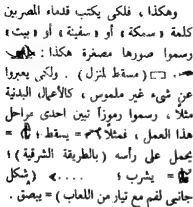 وهكذا ، فلكى يكتب قدماء المصريين
كلمة « سمكة » أو « سفينة » أو « بيت »
رسموا صورها مصغرة هكذا :
( مسقط لمنزل ) . ولكى يعبروا
عن شىء غير ملموس ، كالأعمال البدنية
مثلاً ، رسموا رموزاً تبين احدى مراحل
هذا العمل ، فمثلاً = يسقط ؛ =
يحمل على رأسه ( بالطريقة الشرقية ) ؛
= يشرب ؛ .... ( شكل
جانبى لفم مع تيار من اللعاب ) = يبصق .